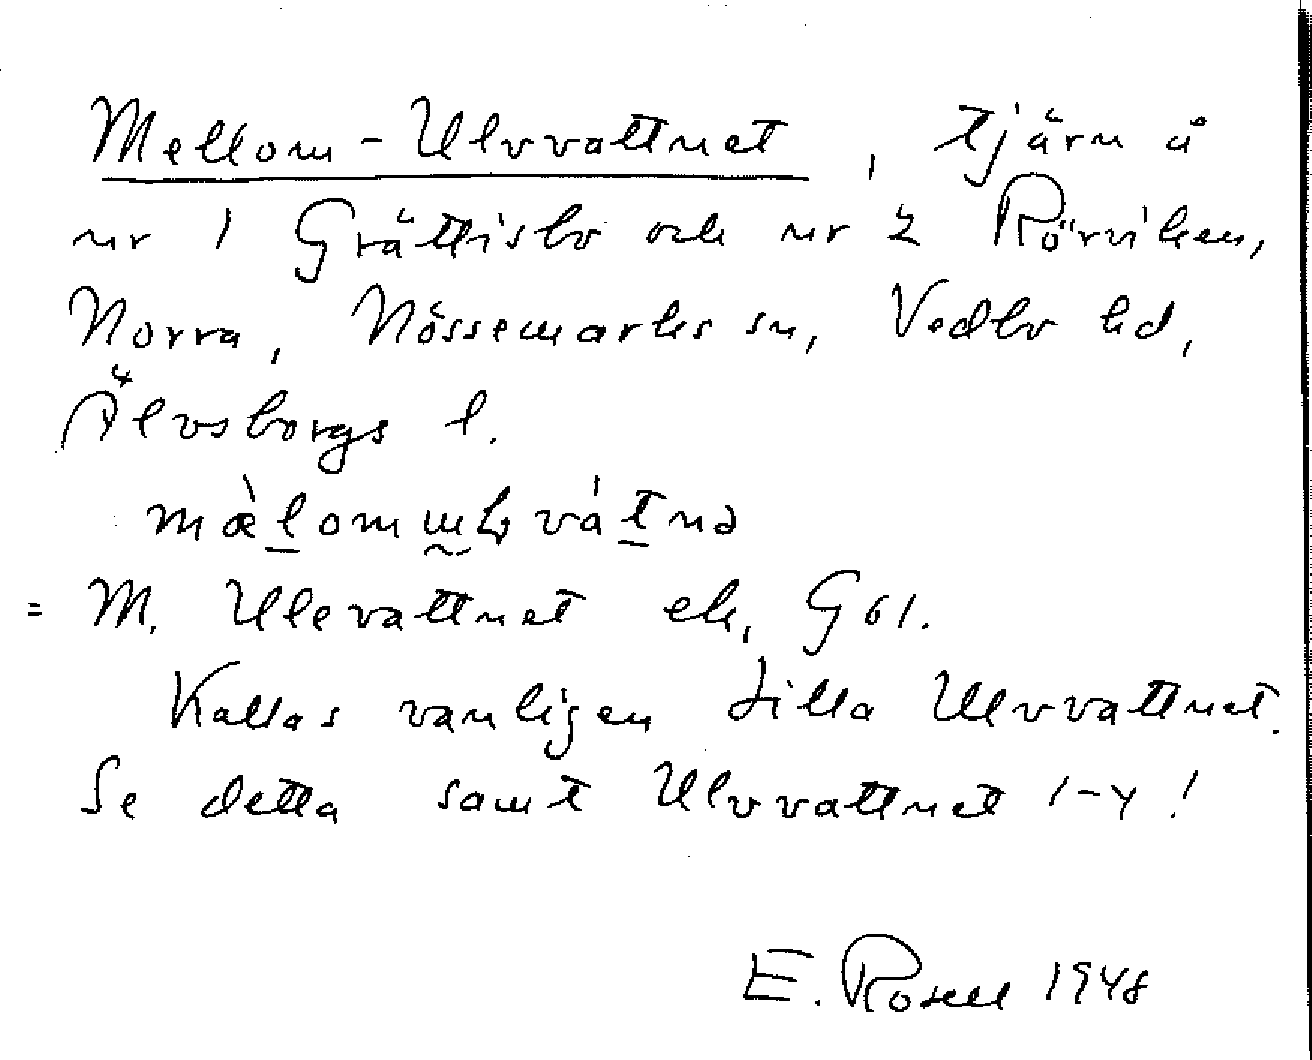 Mellom-Ulvvattnet, tjärn å
nr 1 Grättisbo och nr 2 Rörviken,
Norra, Nössemarks sn, Vedbo hd,
Älvsborgs l.
= M. Ulevattnet ek, G 61.
Kallas vanligen Lilla Ulvvattnet.
Se detta samt Ulvvattnet 1-4!
E. Rosell 1948